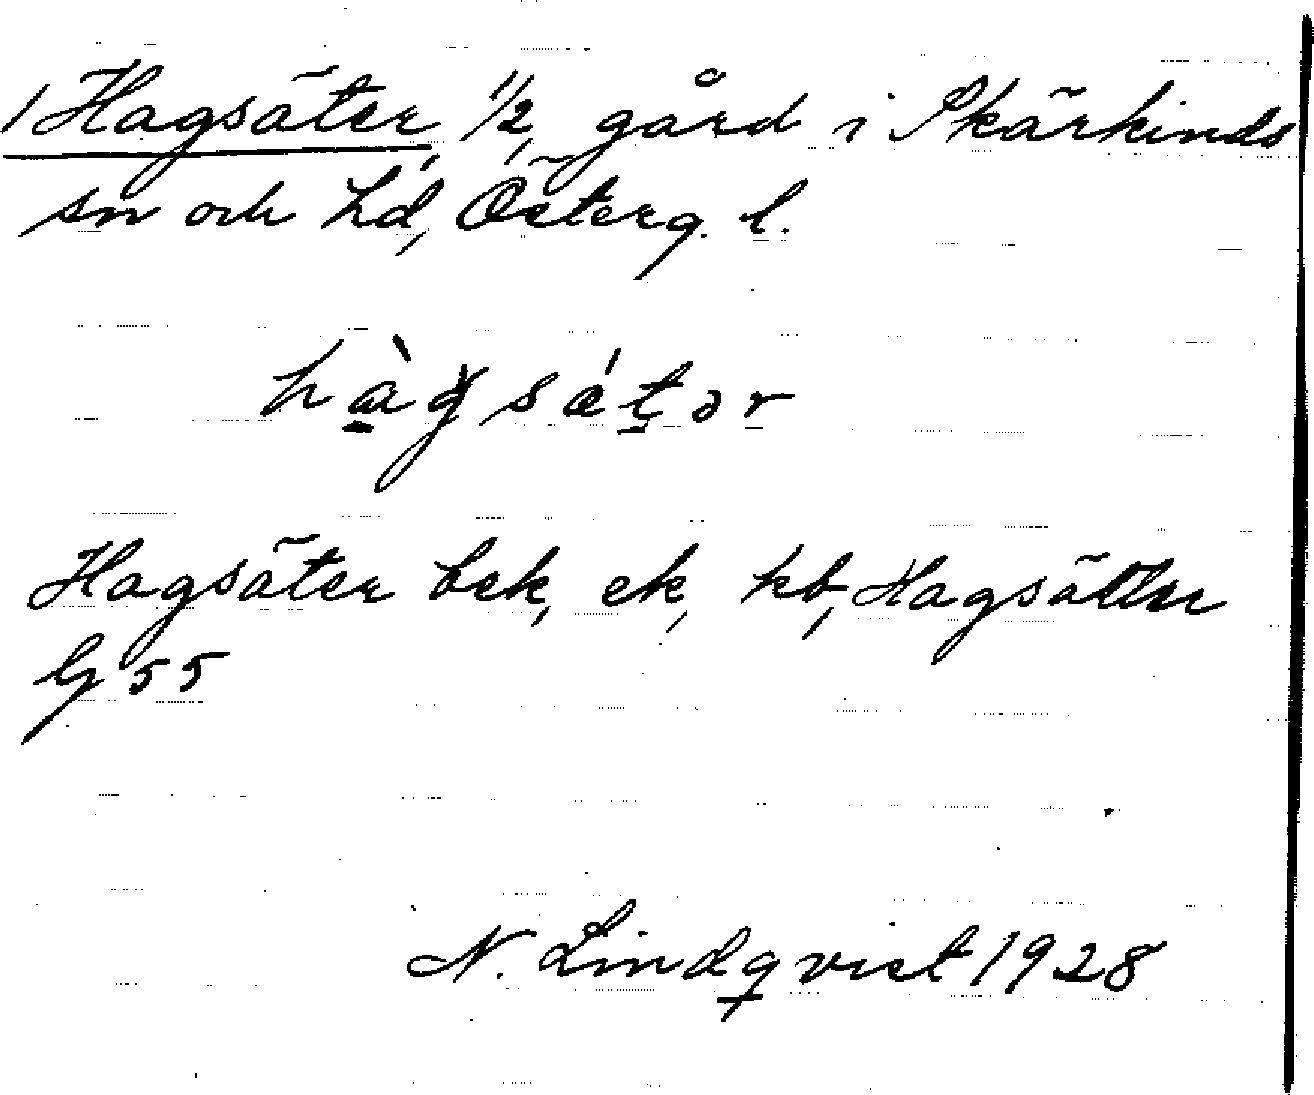 1 Hagsäter, 1/2, gård i Skärkinds
sn och hd, Österg. l.
hàgsǽtər
Hagsäter bek, ek, kb, Hagsätter
G 55
N. Lindqvist 1928